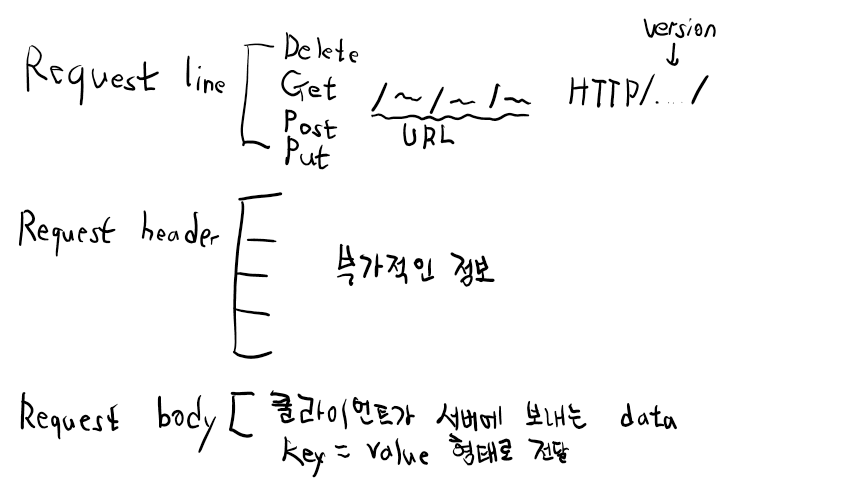 version
Request line
Delete
Get
Post
Put
/~/~/~
URL
HTTP/..../
Request header
부가적인 정보
Request body
클라이언트가 서버에 보내는 data
key = value 형태로 전달